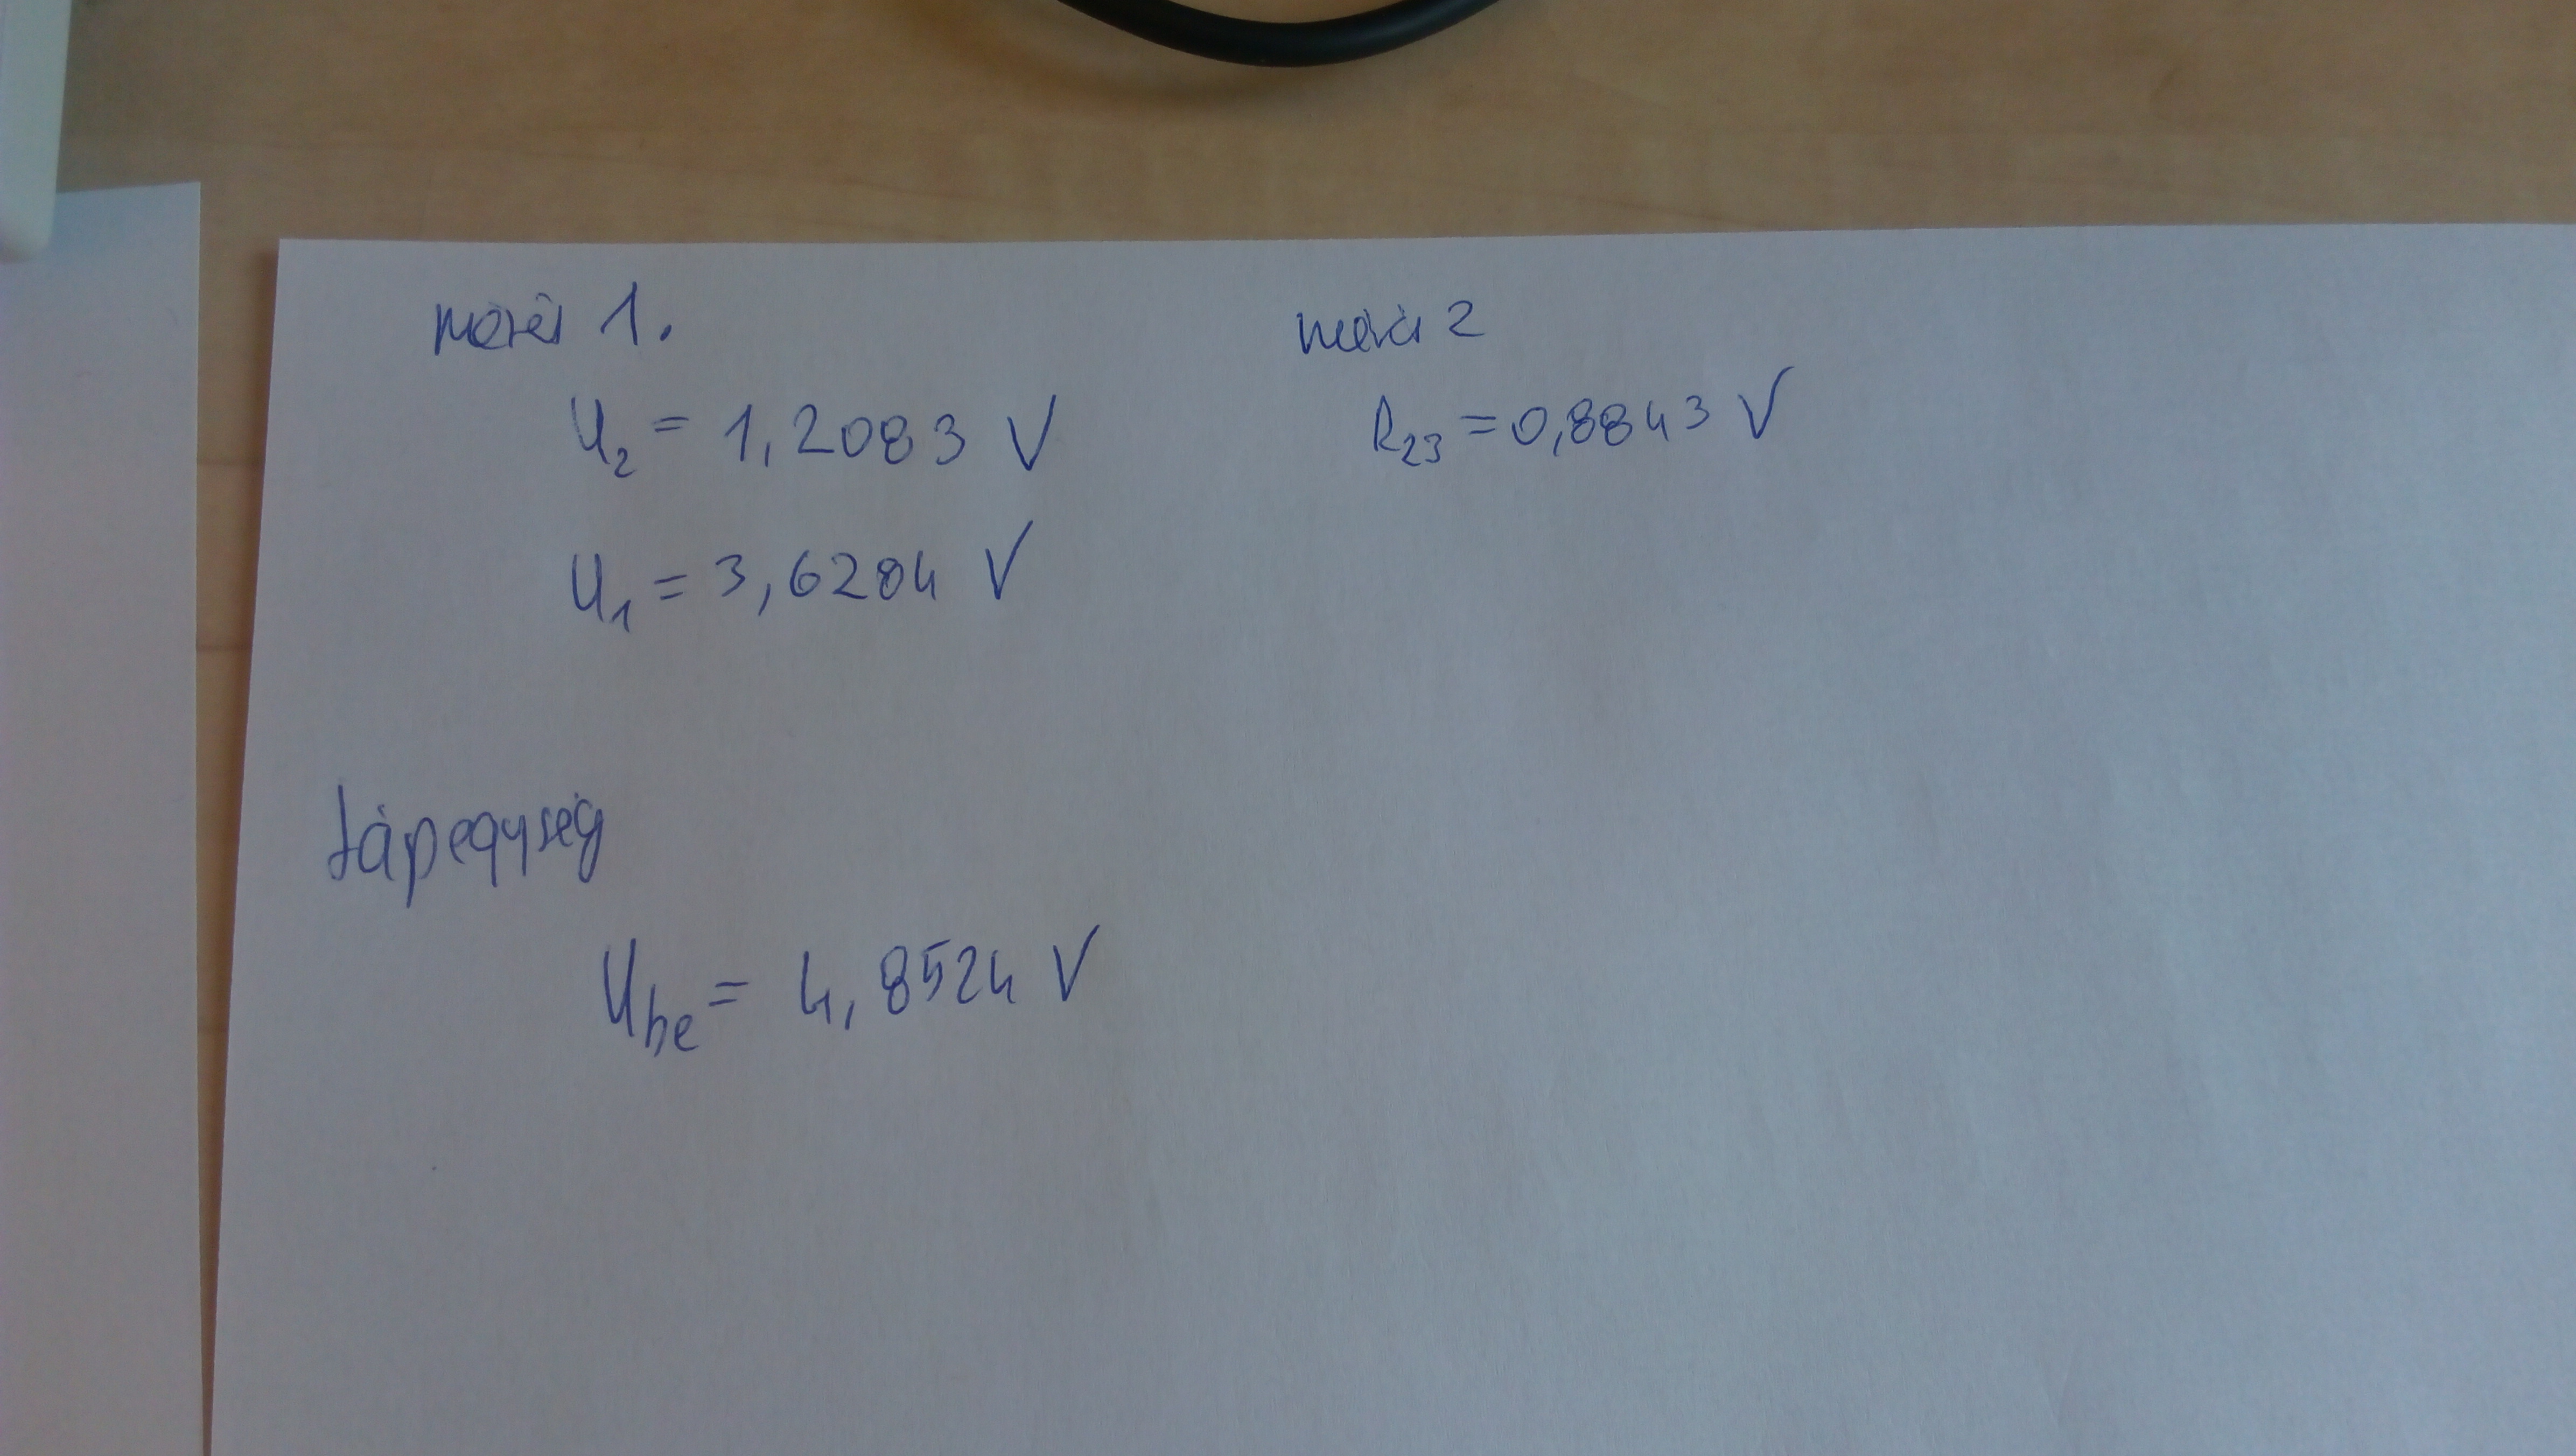 mérés 1.
U₂ = 1,2083 V
U₁ = 3,6204 V
mérés 2
R₂₃ = 0,8843 V
tápegység
U_be = 4,8524 V